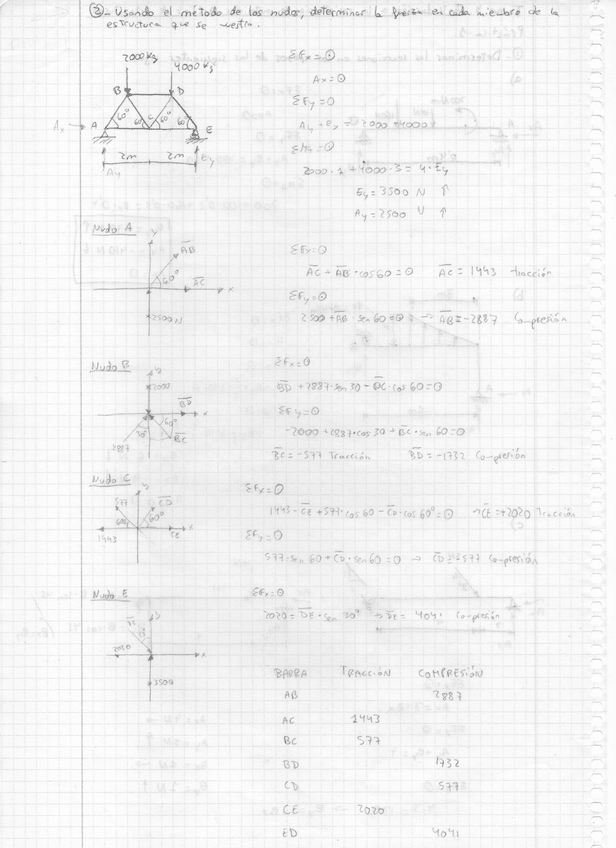 ②- Usando el método de los nudos, determinar la fuerza en cada miembro de la
estructura que se muestra.
2000 Kg
4000 Kg
B D
60° 60° 60° 60°
Ax A C E
2m 2m
Ay Ey
ΣFx=0
Ax=0
ΣFy=0
Ay + Ey = 2000+4000
ΣMA=0
2000·1+4000·3=4·Ey
Ey=3500 N ↑
Ay=2500 N ↑
Nudo A
y
AB
60°
AC x
2500N
ΣFx=0
AC + AB·cos60=0 AC=1443 tracción
ΣFy=0
2500+AB·sen 60=0 → AB=-2887 Compresión
Nudo B
y
2000
BD x
30° 60°
2887 BC
ΣFx=0
BD+2887·sen 30-BC·cos 60=0
ΣFy=0
-2000+2887·cos 30+BC·sen 60=0
BC=-577 Tracción BD=-1732 Compresión
Nudo C
y
577 CD
60° 60°
1443 CE x
ΣFx=0
1443-CE+577·cos 60-CD·cos 60°=0 →CE=+2020 Tracción
ΣFy=0
577·sen 60+CD·sen 60=0 → CD=-577 Compresión
Nudo E
y
DE
30°
2020 x
3500
ΣFx=0
2020=DE·sen 30° →DE=4041 Compresión
BARRA TRACCIÓN COMPRESIÓN
AB 2887
AC 1443
BC 577
BD 1732
CD 577
CE 2020
ED 4041